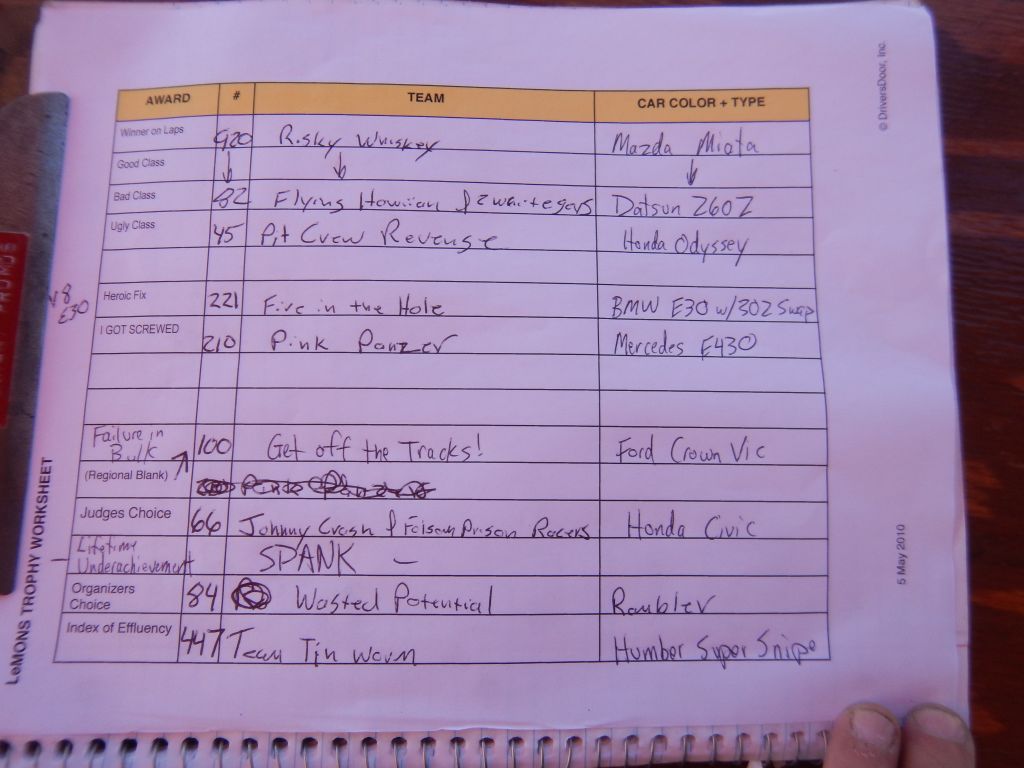 © DriversDoor, Inc.
AWARD # TEAM CAR COLOR + TYPE
Winner on Laps 920 Risky Whiskey Mazda Miata
Good Class ↓ ↓ ↓
Bad Class 82 Flying Howiian & 2 waitegoys Datsun 260Z
Ugly Class 45 Pit Crew Revenge Honda Odyssey
V8
E30
Heroic Fix 221 Fire in the Hole BMW E30 w/302 Swap
I GOT SCREWED 210 Pink Panzer Mercedes E430
Failure in
Bulk 100 Get off the Tracks! Ford Crown Vic
(Regional Blank)
Judges Choice 66 Johnny Crash & Folsom Prison Racers Honda Civic
Lifetime
Underachievement SPANK –
Organizers
Choice 84 Wasted Potential Rambler
Index of Effluency 447 Team Tin Worm Humber Super Snipe
LeMONS TROPHY WORKSHEET
5 May 2010